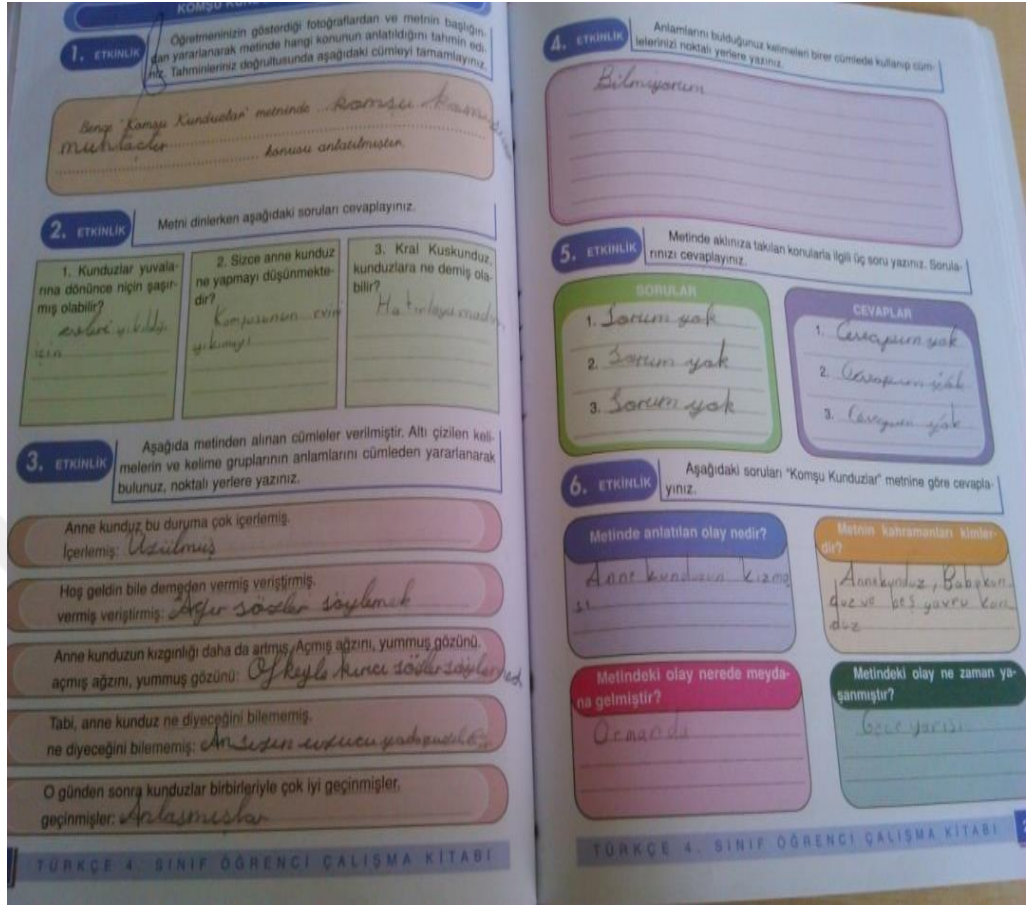 KOMŞU KUN
1. ETKİNLİK
Öğretmeninizin gösterdiği fotoğraflardan ve metnin başlığın-
dan yararlanarak metinde hangi konunun anlatıldığını tahmin edi-
niz. Tahminleriniz doğrultusunda aşağıdaki cümleyi tamamlayınız.
Bence "Komşu Kunduzlar" metninde komşu
muhtaçtır
konusu anlatılmıştır.
2. ETKİNLİK
Metni dinlerken aşağıdaki soruları cevaplayınız.
1. Kunduzlar yuvala-
rına dönünce niçin şaşır-
mış olabilir?
evleri yıkıldığı
için
2. Sizce anne kunduz
ne yapmayı düşünmekte-
dir?
Komşusunun evini
yıkmayı
3. Kral Kuskunduz,
kunduzlara ne demiş ola-
bilir?
Hatırlayamadım
3. ETKİNLİK
Aşağıda metinden alınan cümleler verilmiştir. Altı çizilen keli-
melerin ve kelime gruplarının anlamlarını cümleden yararlanarak
bulunuz, noktalı yerlere yazınız.
Anne kunduz bu duruma çok içerlemiş.
İçerlemiş: Üzülmüş
Hoş geldin bile demeden vermiş veriştirmiş.
vermiş veriştirmiş: Ağır sözler söylemek
Anne kunduzun kızgınlığı daha da artmış. Açmış ağzını, yummuş gözünü.
açmış ağzını, yummuş gözünü: Öfkeyle kırıcı sözler
Tabi, anne kunduz ne diyeceğini bilememiş.
ne diyeceğini bilememiş:
O günden sonra kunduzlar birbirleriyle çok iyi geçinmişler.
geçinmişler: Anlaşmışlar
TÜRKÇE 4. SINIF ÖĞRENCİ ÇALIŞMA KİTABI
4. ETKİNLİK
Anlamlarını bulduğunuz kelimeleri birer cümlede kullanıp cüm-
lelerinizi noktalı yerlere yazınız.
Bilmiyorum
5. ETKİNLİK
Metinde aklınıza takılan konularla ilgili üç soru yazınız. Sorula-
rınızı cevaplayınız.
SORULAR
1. Sorum yok
2. Sorum yok
3. Sorum yok
CEVAPLAR
1. Cevapım yok
2. Cevapım yok
3. Cevapım yok
6. ETKİNLİK
Aşağıdaki soruları "Komşu Kunduzlar" metnine göre cevapla-
yınız.
Metinde anlatılan olay nedir?
Anne kunduzun kızma
sı
Metnin kahramanları kimler-
dir?
Annekunduz, Babakun
duz ve beş yavru kun
duz
Metindeki olay nerede meyda-
na gelmiştir?
Ormanda
Metindeki olay ne zaman ya-
şanmıştır?
Gece yarısı
TÜRKÇE 4. SINIF ÖĞRENCİ ÇALIŞMA KİTABI